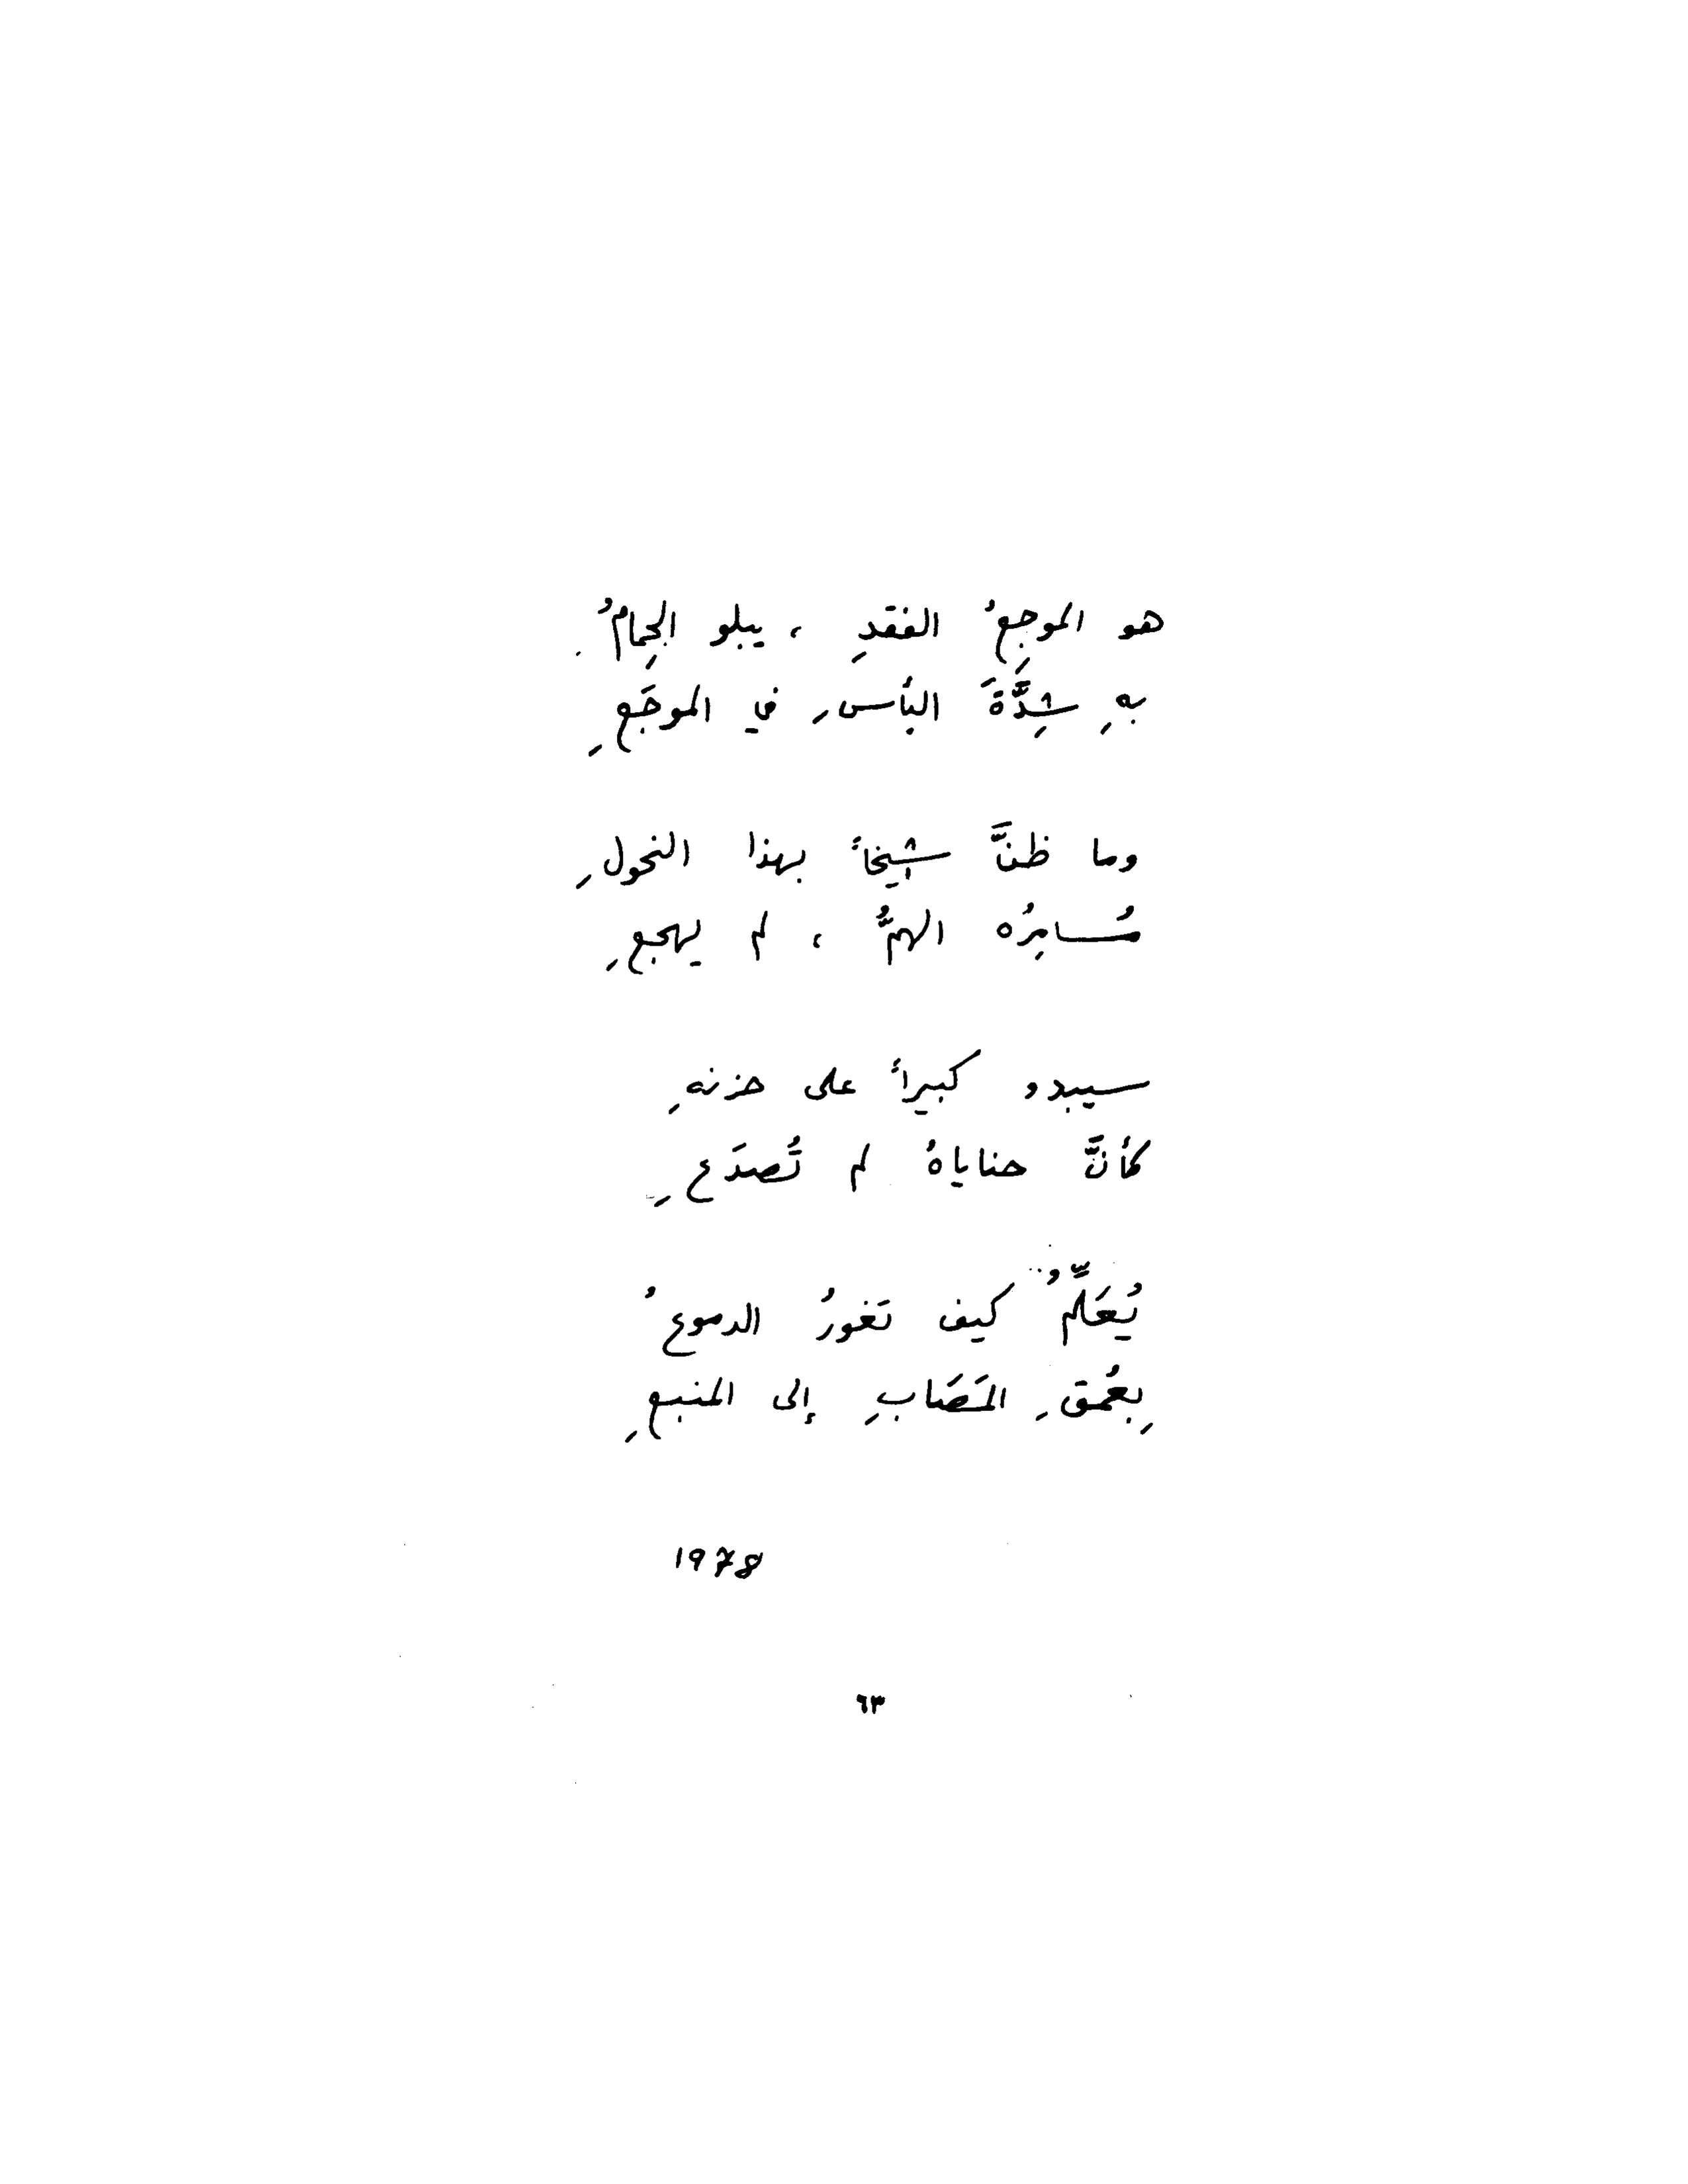 هو الموجِعُ الفقدِ ، يبلو الحِمامُ
بهِ شِدَّةَ البأسِ في الموجَعِ
وما ظنَّ شيخاً بهذا النحولِ
مُسامِرُه الهمُّ ، لم يهجعِ
سيبدو كبيراً على حزنهِ
كأنَّ حناياهُ لم تُصدَعِ
يُعَلِّمُ كيف تَغورُ الدموعُ
بِعُمقِ المَصَابِ إلى المنبعِ
1978
٦٣